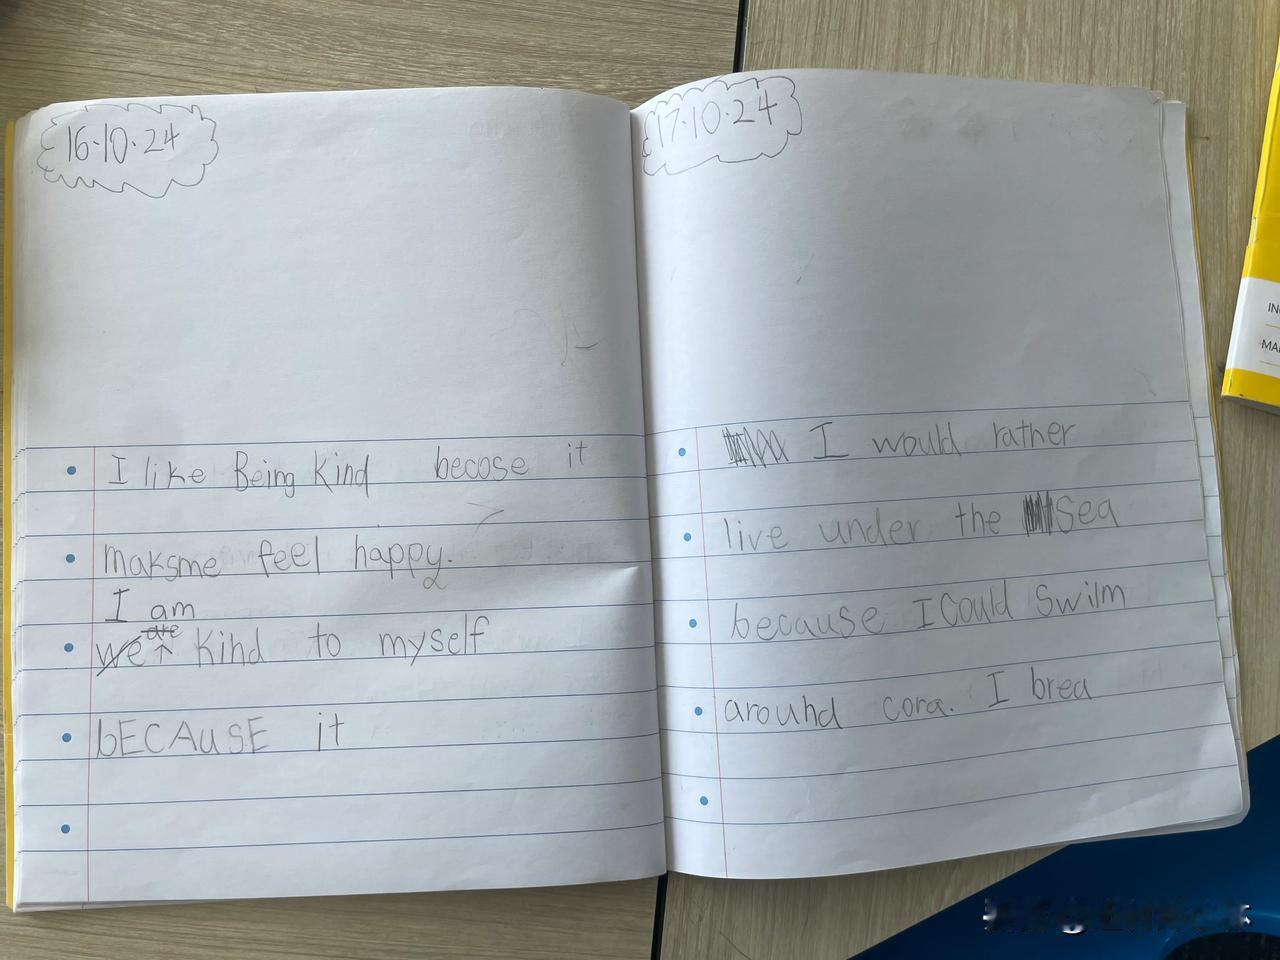 16.10.24
I like Being kind becose it
maksme feel happy.
I am
are
we kind to myself
bECAuSE it
17.10.24
I would rather
live under the sea
because I Could swilm
around cora. I brea
IN
MA